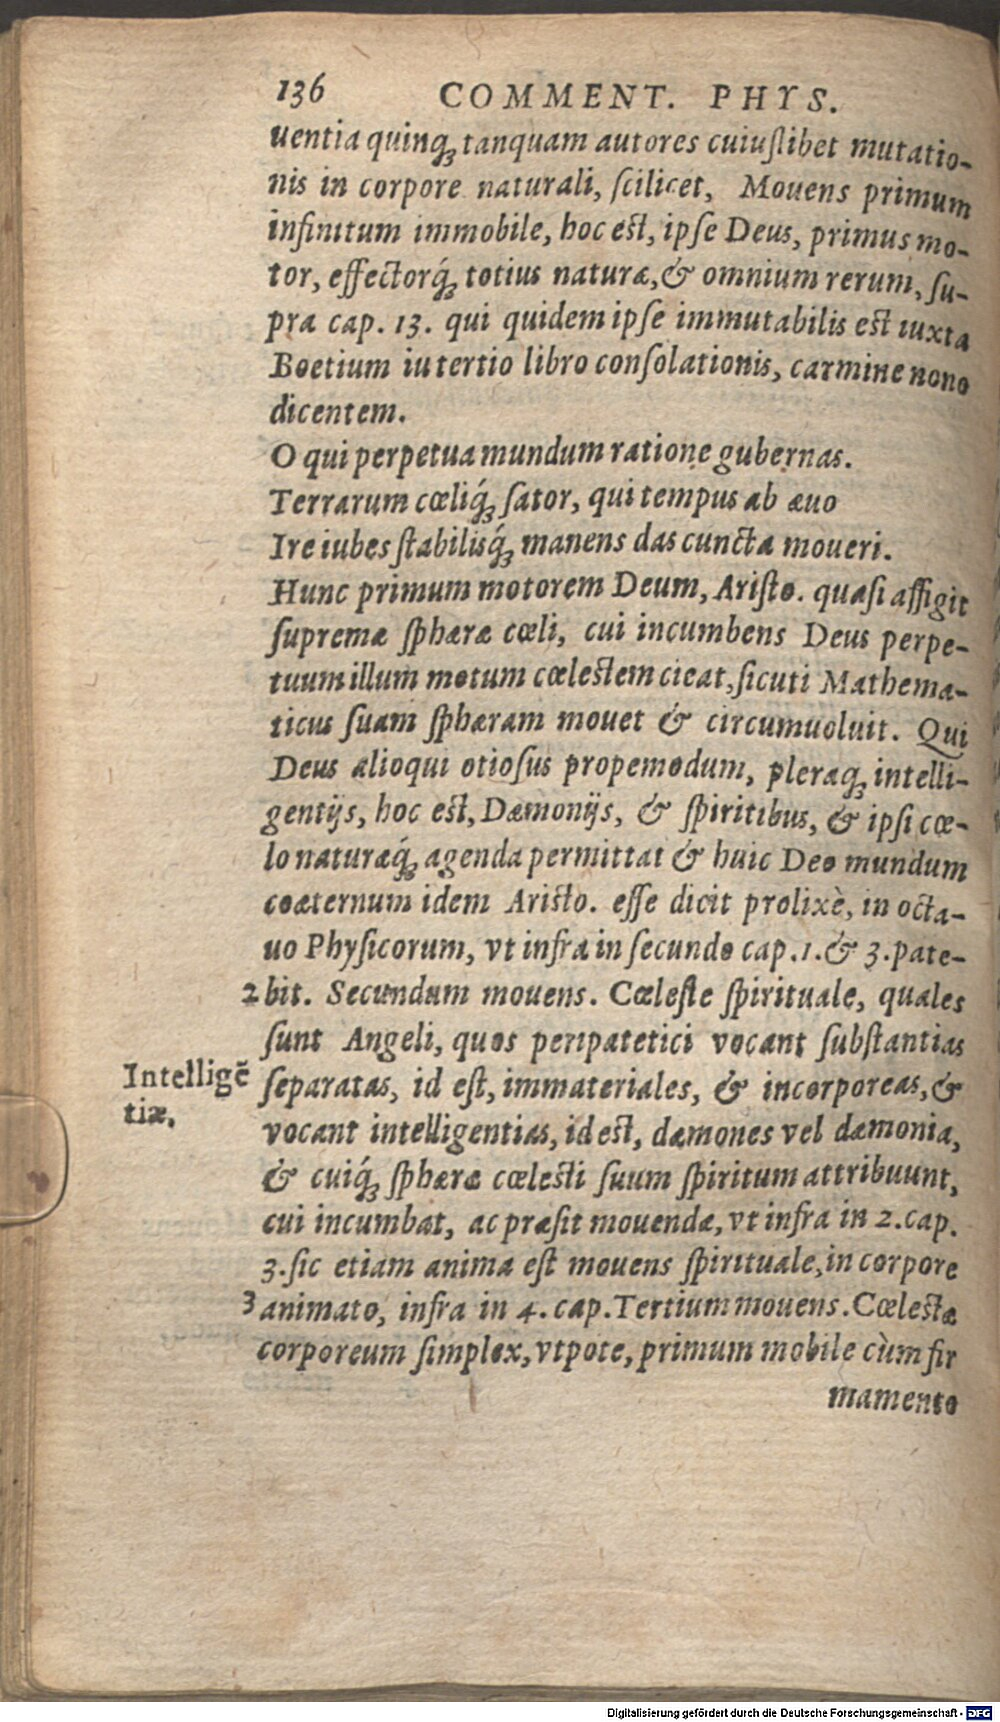 136 COMMENT. PHYS.
uentia quinq́ꝫ tanquam autores cuiuſlibet mutatio-
nis in corpore naturali, ſcilicet, Mouens primum
infinitum immobile, hoc est, ipſe Deus, primus mo-
tor, effectorq́ꝫ totius naturæ, & omnium rerum, ſu-
pra cap. 13. qui quidem ipſe immutabilis est iuxta
Boetium iu tertio libro conſolationis, carmine nono
dicentem.
O qui perpetua mundum ratione gubernas.
Terrarum cœliq́ꝫ ſator, qui tempus ab æuo
Ire iubes ſtabilisq́ꝫ manens das cuncta moueri.
Hunc primum motorem Deum, Ariſto. quaſi affigit
ſupremæ ſphæræ cœli, cui incumbens Deus perpe-
tuum illum motum cœlestem cieat, ſicuti Mathema-
ticus ſuam ſphæram mouet & circumuoluit. Qui
Deus alioqui otioſus propemodum, pleraqꝫ intelli-
gentijs, hoc est, Dæmonijs, & ſpiritibus, & ipſi cœ-
lo naturæq́ꝫ agenda permittat & huic Deo mundum
coæternum idem Aristo. eſſe dicit prolixè, in octa-
uo Phyſicorum, vt infra in ſecundo cap. 1. & 3. pate-
2 bit. Secundum mouens. Cœleſte ſpirituale, quales
ſunt Angeli, quos peripatetici vocant ſubſtantias
Intelligē
tiæ.
ſeparatas, id eſt, immateriales, & incorporeas, &
vocant intelligentias, id est, dæmones vel dæmonia,
& cuiq́ꝫ ſphæræ cœlesti ſuum ſpiritum attribuunt,
cui incumbat, ac præſit mouendæ, vt infra in 2. cap.
3. ſic etiam anima eſt mouens ſpirituale, in corpore
3 animato, infra in 4. cap. Tertium mouens. Cœlestæ
corporeum ſimplex, vtpote, primum mobile cùm fir
mamento
Digitalisierung gefördert durch die Deutsche Forschungsgemeinschaft - DFG